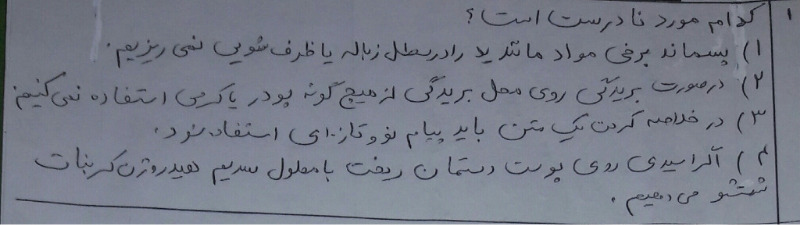 ۱ کدام مورد نادرست است؟
۱) پسماند برخی مواد مانند ید را در سطل زباله یا ظرف شویی نمی ریزیم.
۲) در صورت بریدگی روی محل بریدگی از هیچ گونه پودر یا کرمی استفاده نمی کنیم
۳) در خلاصه کردن یک متن باید پیام نو و تازه ای استفاده نمود.
۴) اگر اسیدی روی پوست دستمان ریخت با محلول سدیم هیدروژن کربنات
شستشو می دهیم.